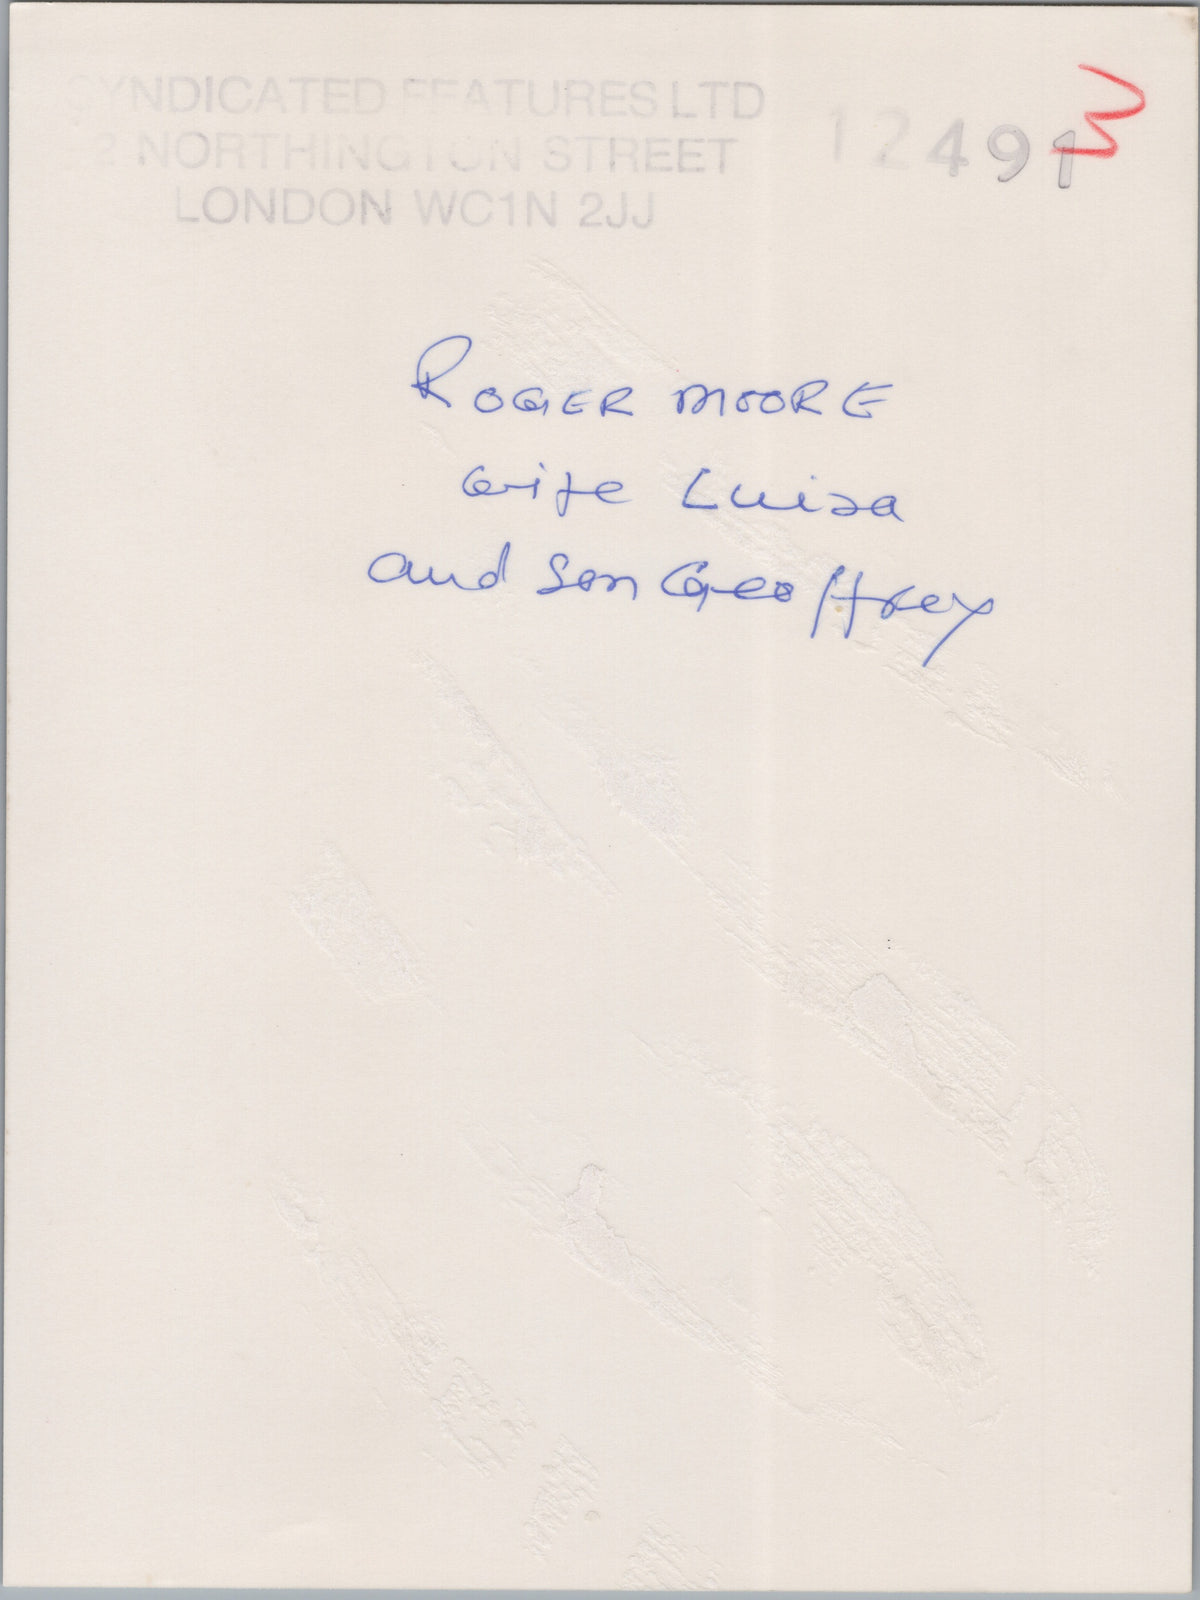 SYNDICATED FEATURES LTD
2 NORTHINGTON STREET
LONDON WC1N 2JJ
12491
ROGER MOORE
wife Luisa
and son Geoffrey